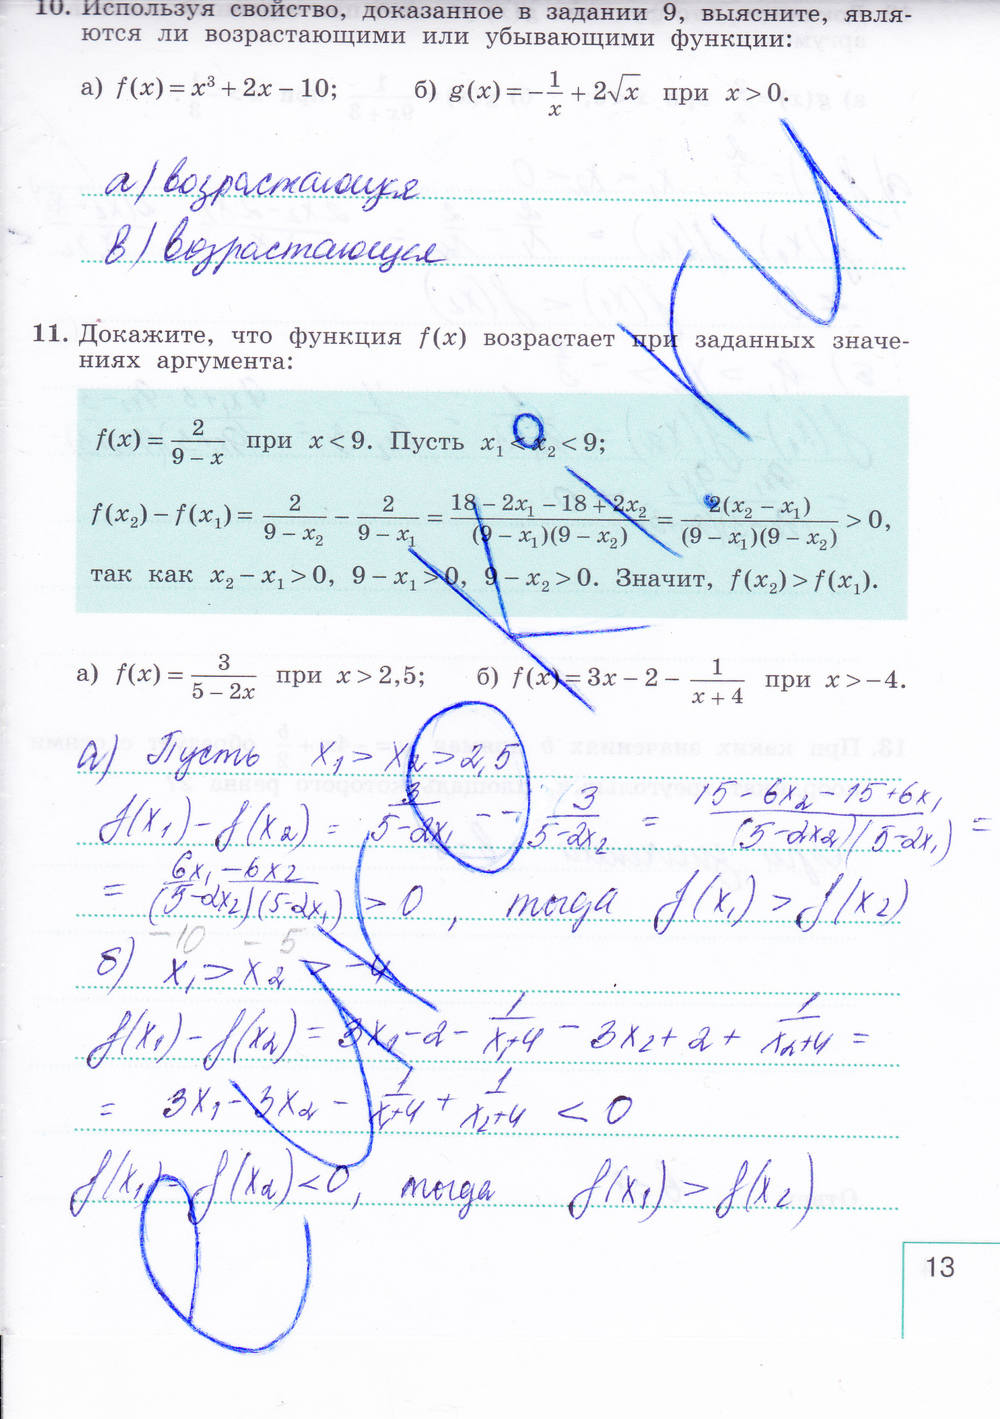 10. Используя свойство, доказанное в задании 9, выясните, явля-
ются ли возрастающими или убывающими функции:
а) f(x) = x³ + 2x − 10; б) g(x) = −1/x + 2√x при x > 0.
а) возрастающая
в) возрастающая
11. Докажите, что функция f(x) возрастает при заданных значе-
ниях аргумента:
f(x) = 2/(9 − x) при x < 9. Пусть x₁ < x₂ < 9;
f(x₂) − f(x₁) = 2/(9 − x₂) − 2/(9 − x₁) = (18 − 2x₁ − 18 + 2x₂)/((9 − x₁)(9 − x₂)) = 2(x₂ − x₁)/((9 − x₁)(9 − x₂)) > 0,
так как x₂ − x₁ > 0, 9 − x₁ > 0, 9 − x₂ > 0. Значит, f(x₂) > f(x₁).
а) f(x) = 3/(5 − 2x) при x > 2,5; б) f(x) = 3x − 2 − 1/(x + 4) при x > −4.
а) Пусть x₁ > x₂ > 2,5
f(x₁) − f(x₂) = 3/(5−2x₁) − 3/(5−2x₂) = (15 − 6x₂ − 15 + 6x₁)/((5−2x₂)(5−2x₁)) =
= (6x₁ − 6x₂)/((5−2x₂)(5−2x₁)) > 0, тогда f(x₁) > f(x₂)
−10 − 5
б) x₁ > x₂ > −4
f(x₁) − f(x₂) = 3x₁ − 2 − 1/(x₁+4) − 3x₂ + 2 + 1/(x₂+4) =
= 3x₁ − 3x₂ − 1/(x₁+4) + 1/(x₂+4) < 0
f(x₁) − f(x₂) < 0, тогда f(x₁) > f(x₂)
13